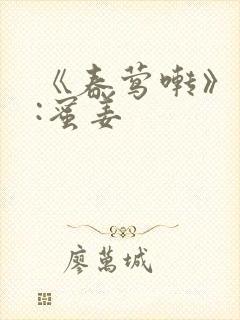 《春莺啭》
:蜜姜
廖萬城